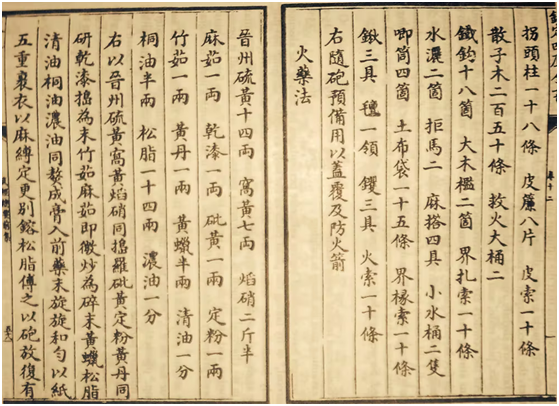 拐頭柱一十八條　皮簾八片　皮索一十條
散子木二百五十條　救火大桶二
鐵鉤十八箇　大木檻二箇　界扎索一十條
水濃二箇　拒馬二　麻搭四具　小水桶二隻
唧筒四箇　土布袋一十五條　界椽索一十條
鍬三具　氊一領　钁三具　火索一十條
右隨砲預備用以蓋覆及防火箭
火藥法
晉州硫黃十四兩　窩黃七兩　焰硝二斤半
麻茹一兩　乾漆一兩　砒黃一兩　定粉一兩
竹茹一兩　黃丹一兩　黃蠟半兩　清油一分
桐油半兩　松脂一十四兩　濃油一分
右以晉州硫黃窩黃焰硝同搗羅砒黃定粉黃丹同
研乾漆搗為末竹茹麻茹即微炒為碎末黃蠟松脂
清油桐油濃油同熬成膏入前藥末旋旋和勻以紙
五重裹衣以麻縛定更別鎔松脂傅之以砲放復有